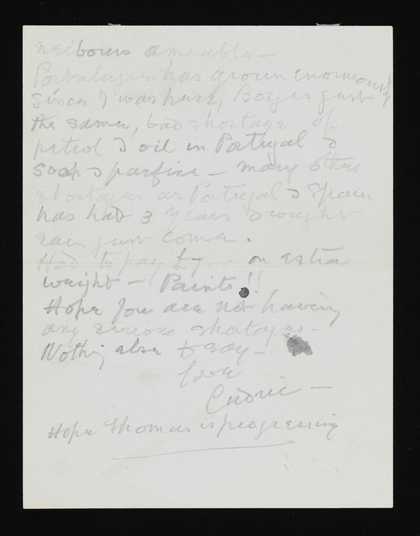 neibours amenable —
Portalegre has grown enormously
since I was here, Boyes just
the same, bad shortage of
petrol & oil in Portugal &
soap & parfine — many other
shortages as Portugal & Spain
has had 3 years drought
rain just come.
Had to pay £7 on extra
weight — Paints!!
Hope you are not having
any serious shortages —
Nothing else to say —
love
Cedric —
Hope Thomas is progressing